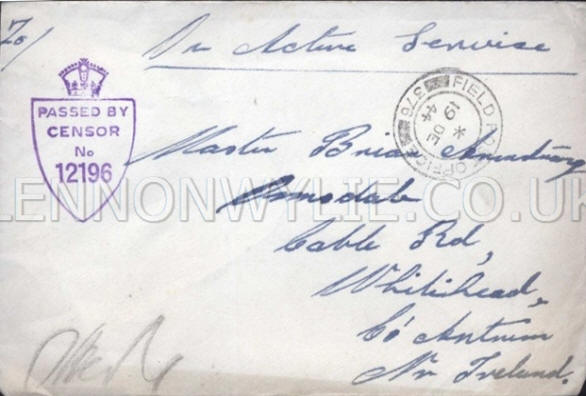 To/
On Active Service
PASSED BY
CENSOR
No
12196
FIELD POST OFFICE
376
19 DE
44
Master Brian Armstrong
Ormsdale
Cable Rd,
Whitehead,
Co Antrim
Nr Ireland.
LENNONWYLIE.CO.UK